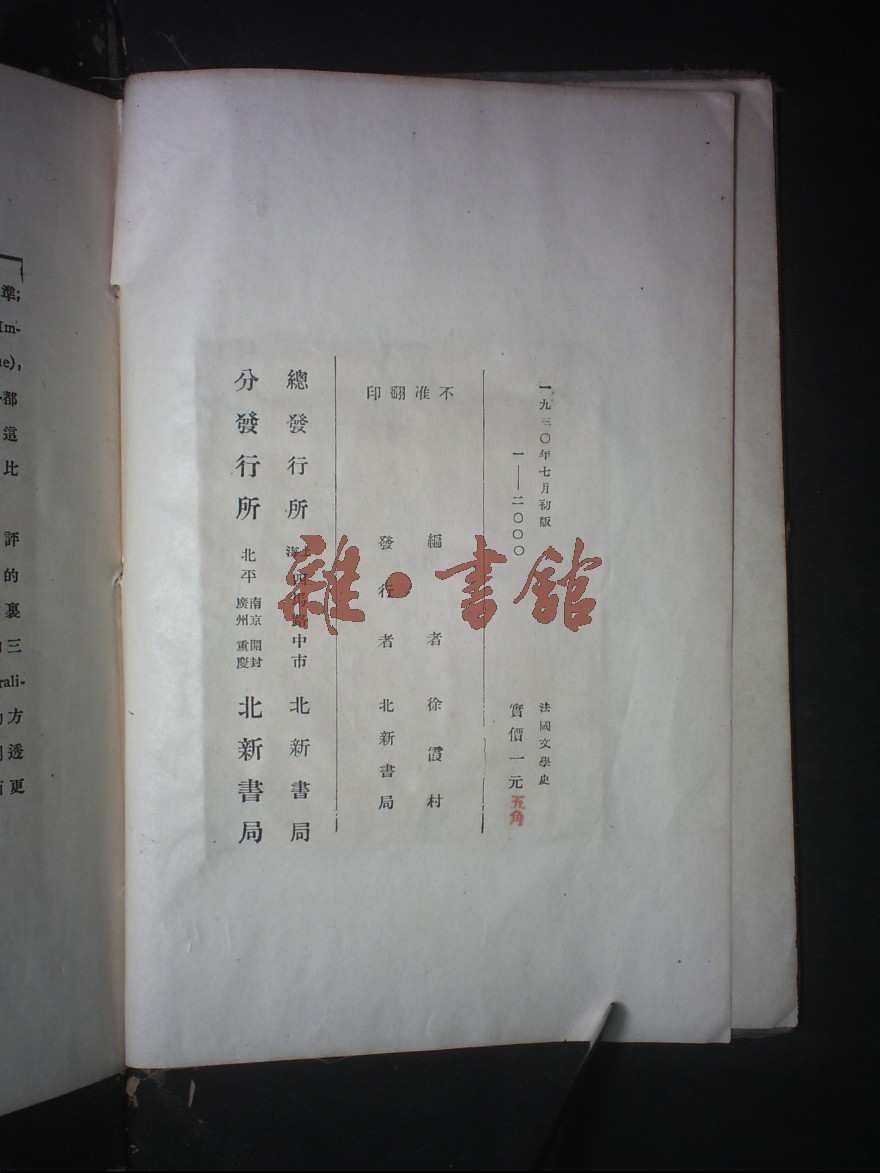 一九三〇年七月初版
一——二〇〇〇
法國文學史
實價一元五角
不准翻印
編者 徐霞村
發行者 北新書局
總發行所 上海四馬路中市 北新書局
分發行所 北平 南京 廣州 開封 重慶 北新書局
雜·書館
準;
Im-
ue),
都
這
比
評
的
裏
三
rali-
方
透
更